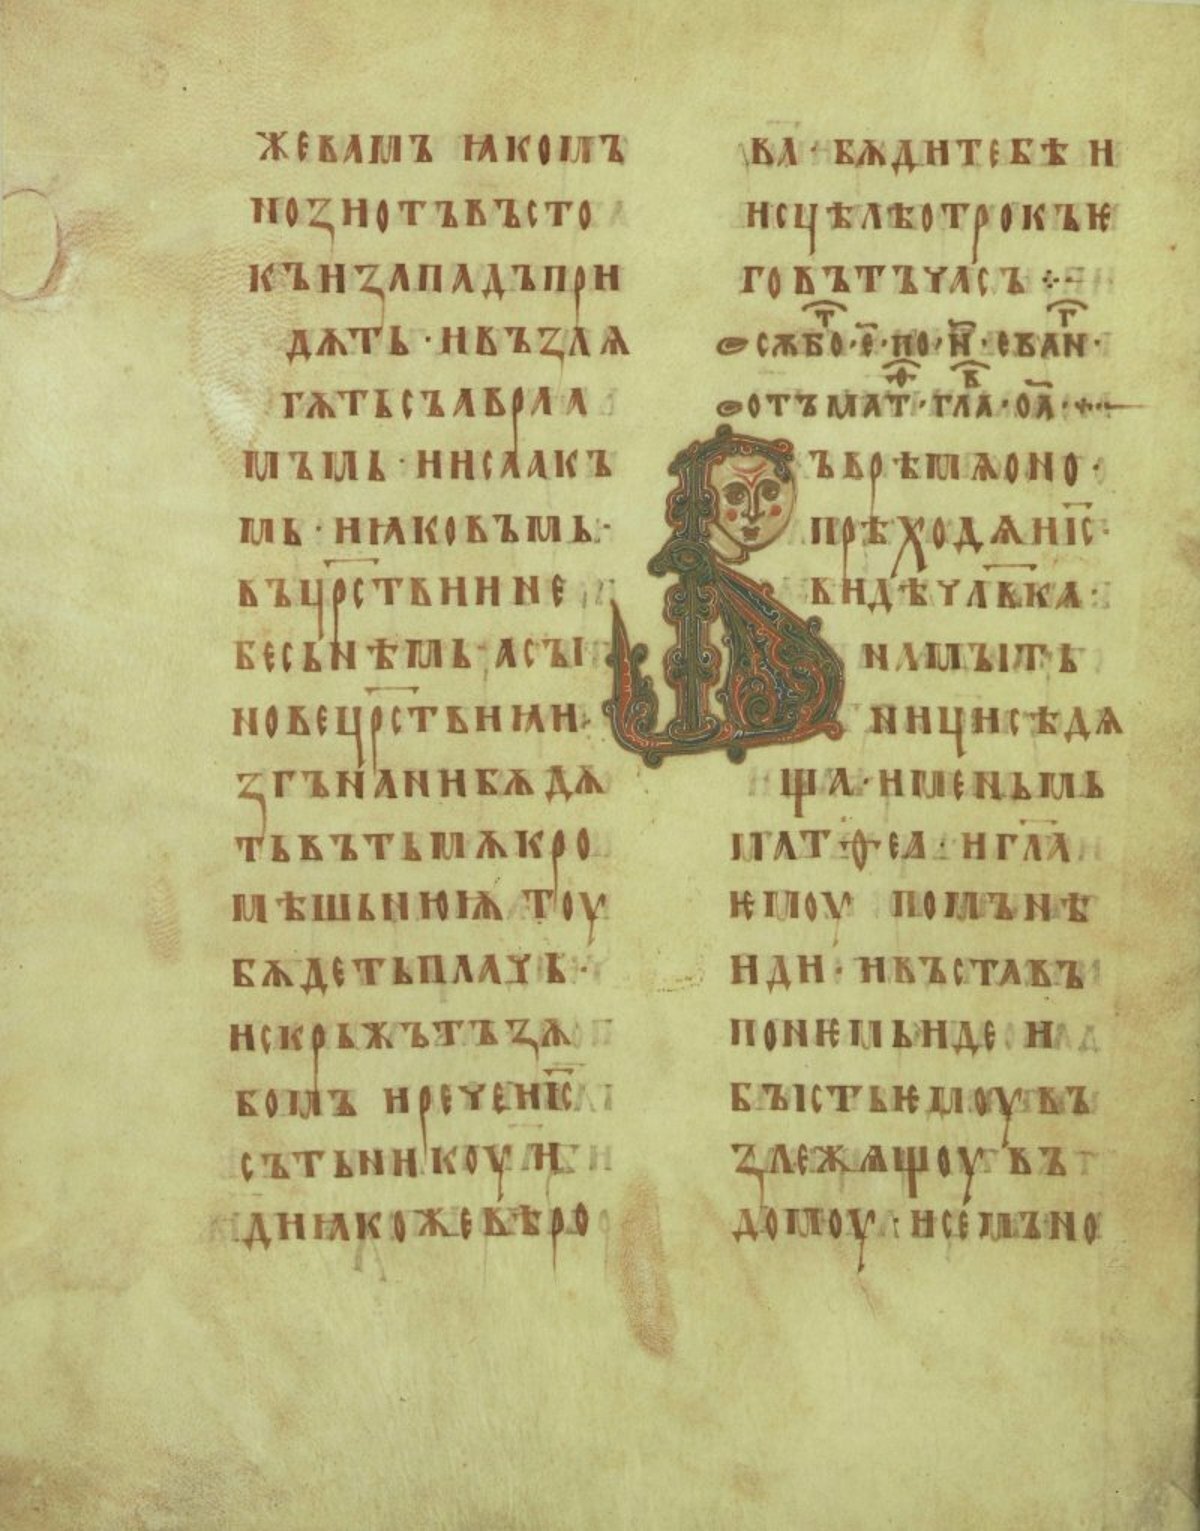 жевамъ ꙗкомъ
ноꙁиотъвъсто
къиꙁападъпри
дѫть · ивъꙁлѧ
гѫтьсъавраа
мъмь · иисаакъ
мь · иꙗковъмь ·
въцр҃ствиине
бесьнѣмь · асꙑ
новецр҃ствиꙗи ·
ꙁгънаниб��дѫ
тьвътьмѫкро
мѣшьнюѭ тоу
бѫдетьплачь ·
искрьжътъꙁѫ
бомъ иречеиі҃с
сътьникоу и҃
дииꙗкожевѣро
ва · бѫдитебѣ и
исцѣлѣотрокъѥ
говътъчасъ ·:·
сѫбоⷮ · е҃ · по · н҃ · еваⷢн ·
отъматⷴ · глаⷡ · о҃а ·
ъврѣмѧоно ·
прѣходѧиі҃с ·
видѣчл҃вка ·
намꙑтъ
ницисѣдѧ
ща · именьмь
матѳеа · игл҃а
ѥмоу помънѣ
иди · ивъставъ
понѥмьиде и
бꙑстьѥмоувъ
ꙁлежѧщоувъ
домоу · исемъно